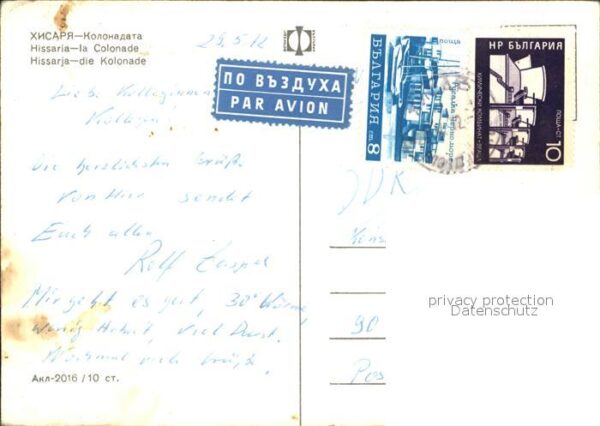 ХИСАРЯ—Колонадата
Hissaria—la Colonade
Hissarja—die Kolonade
29.5.72
ПО ВЪЗДУХА
PAR AVION
БЪЛГАРИЯ
ПОЩА
ст. 8
НР БЪЛГАРИЯ
ХИМИЧЕСКИ КОМБИНАТ-ВРАЦА
ПОЩА·СТ.
10
Liebe Kolleginnen
Kollegen
Die herzlichsten Grüße
von hier sendet
Euch allen
Rolf
Mir geht es gut, 30° Wärme,
wenig Arbeit, viel Durst.
Nochmal viele Grüße.
90
Pos
privacy protection
Datenschutz
Акл-2016/10 ст.